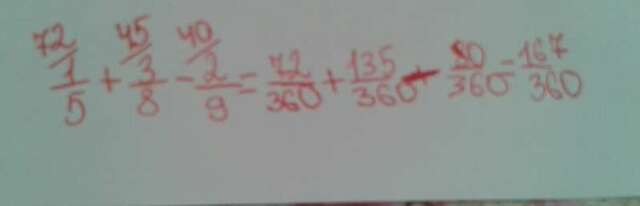 72/ 45/ 40/
1/5 + 3/8 - 2/9 = 72/360 + 135/360 - 80/360 = 167/360